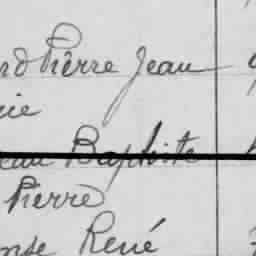 rd Pierre Jean
ie
eau Baptiste
Pierre
onse René